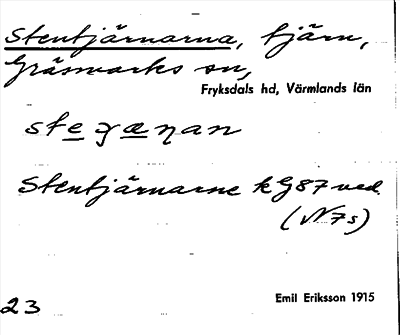 Stentjärnarna, tjärn,
Gräsmarks sn,
Fryksdals hd, Värmlands län
Stentjärnarne k G87 ved.
(N7s)
23
Emil Eriksson 1915